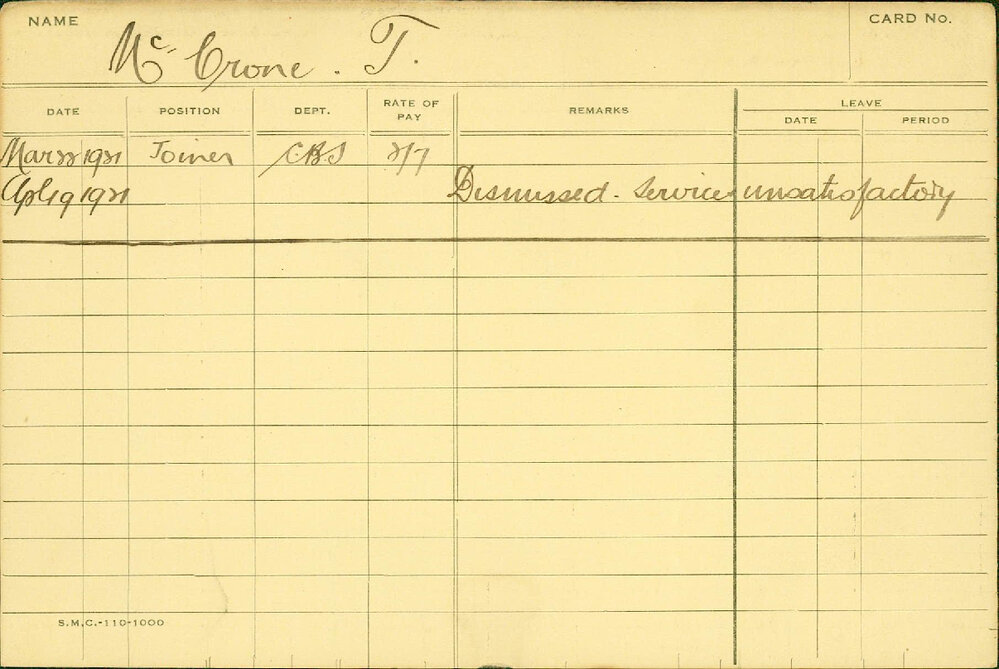 NAME
McCrone. T.
CARD No.
DATE POSITION DEPT. RATE OF PAY REMARKS LEAVE
DATE PERIOD
Mar 22 1921 Joiner CBS 2/7
Apl 19 1921 Dismissed - Service unsatisfactory
S.M.C.-110-1000